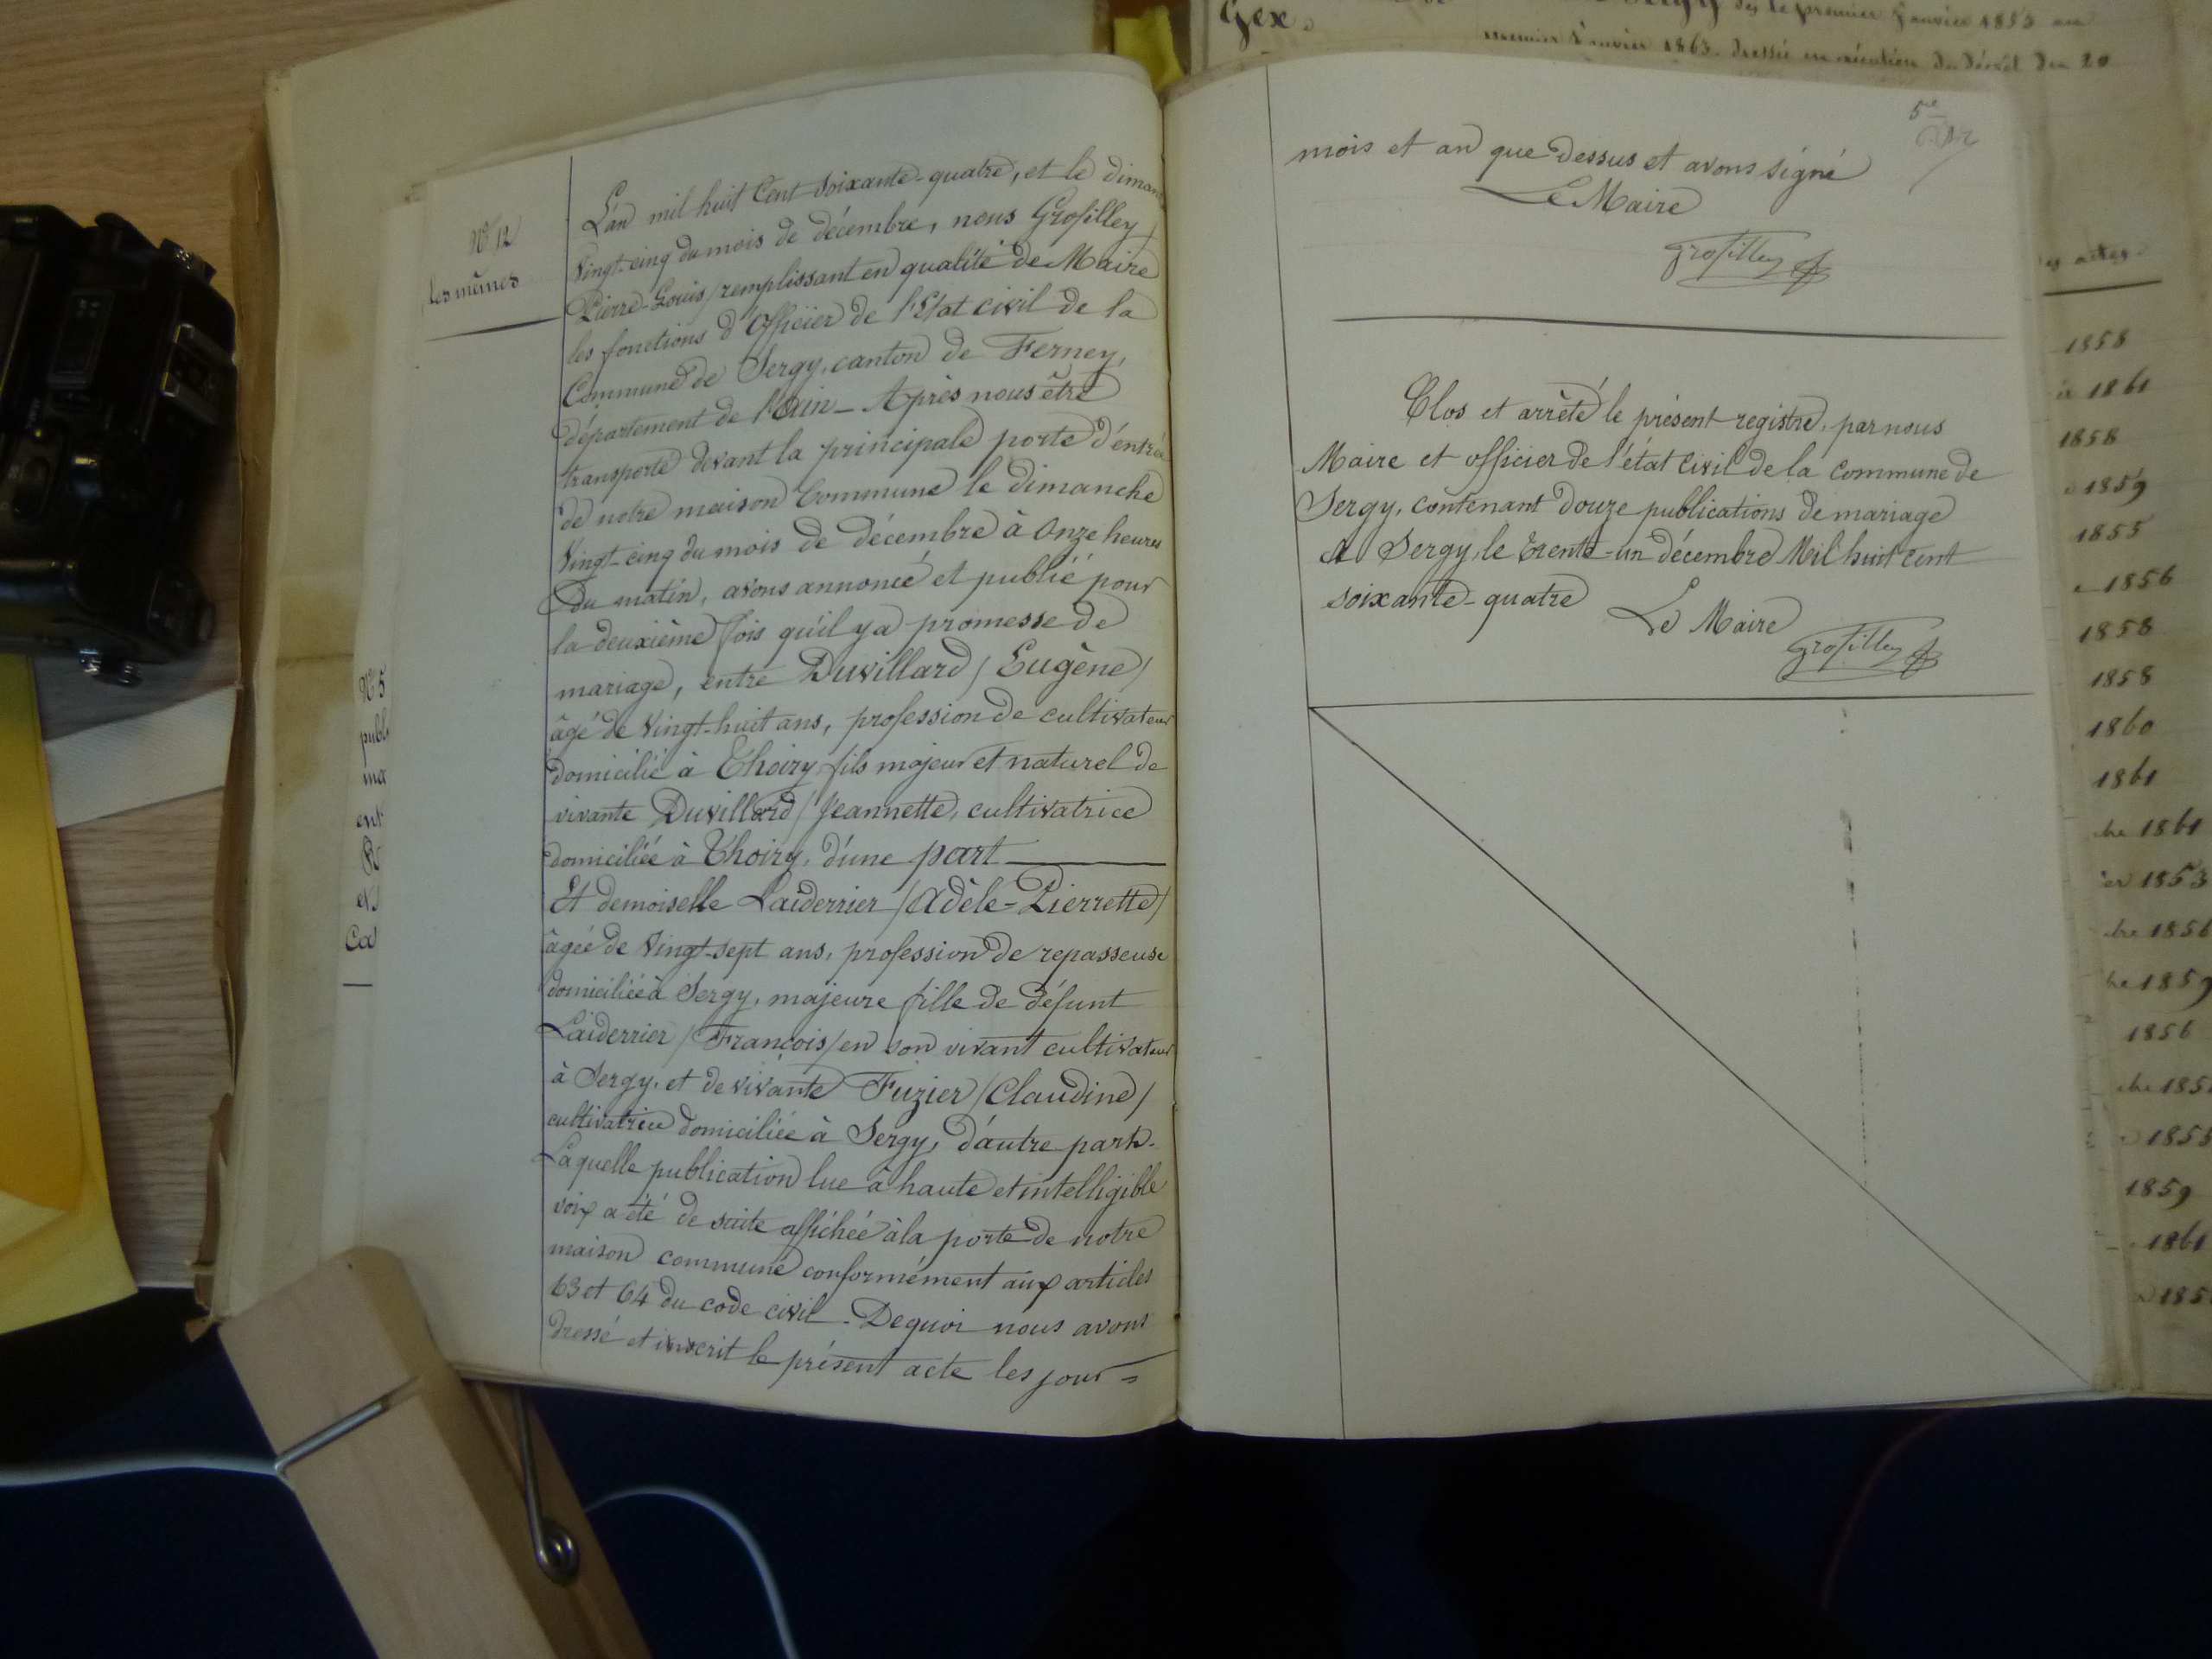 N° 12
les mêmes
L'an mil huit Cent soixante-quatre, et le diman
Vingt-cinq du mois de décembre, nous Grosfilley
Pierre-Louis / remplissant en qualité de Maire
les fonctions d'Officier de l'Etat civil de la
Commune de Sergy, canton de Ferney,
département de l'Ain - Après nous être
transporté devant la principale porte d'entrée
de notre maison Commune le dimanche
Vingt-cinq du mois de décembre à Onze heures
Du matin, avons annoncé et publié pour
la deuxième fois qu'il y a promesse de
mariage, entre Duvillard / Eugène /
âgé de Vingt-huit ans, profession de cultivateur
domicilié à Thoiry fils majeur et naturel de
vivante Duvillard / Jeannette, cultivatrice
domiciliée à Thoiry, d'une part
Et demoiselle Laiderrier / Adèle-Pierrette /
âgée de Vingt-sept ans, profession de repasseuse
domiciliée à Sergy, majeure fille de défunt
Laiderrier / François / en son vivant cultivateur
à Sergy, et de vivante Fuzier / Claudine /
cultivatrice domiciliée à Sergy, d'autre part.
Laquelle publication lue à haute et intelligible
voix a été de suite affichée à la porte de notre
maison commune conformément aux articles
63 et 64 du code civil. De quoi nous avons
dressé et inscrit le présent acte les jour =
N° 5
publ
ma
ent
et
Ca
5e
mois et an que dessus et avons signé
Le Maire
Grosfilley
Clos et arrêté le présent registre, par nous
Maire et officier de l'état civil de la commune de
Sergy, contenant douze publications de mariage
A Sergy, le trente-un décembre Mil huit cent
soixante-quatre
Le Maire
Grosfilley
Gex.
le premier Janvier 1853 au
premier Janvier 1863. dressée en exécution du décret du 20
actes
1858
1861
1858
1859
1855
1856
1858
1858
1860
1861
1861
1853
1856
1859
1856
185
1858
1859
1861
185